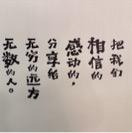 把我们
相信的
感动的，
分享给
无穷的远方
无数的人。